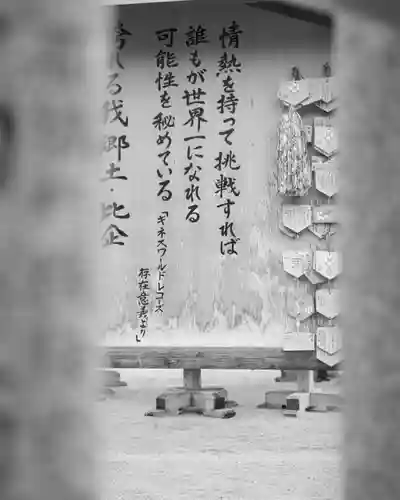 情熱を持って挑戦すれば
誰もが世界一になれる
可能性を秘めている
「ギネスワールドレコーズ
存在意義より」
誇れる我郷土・比企